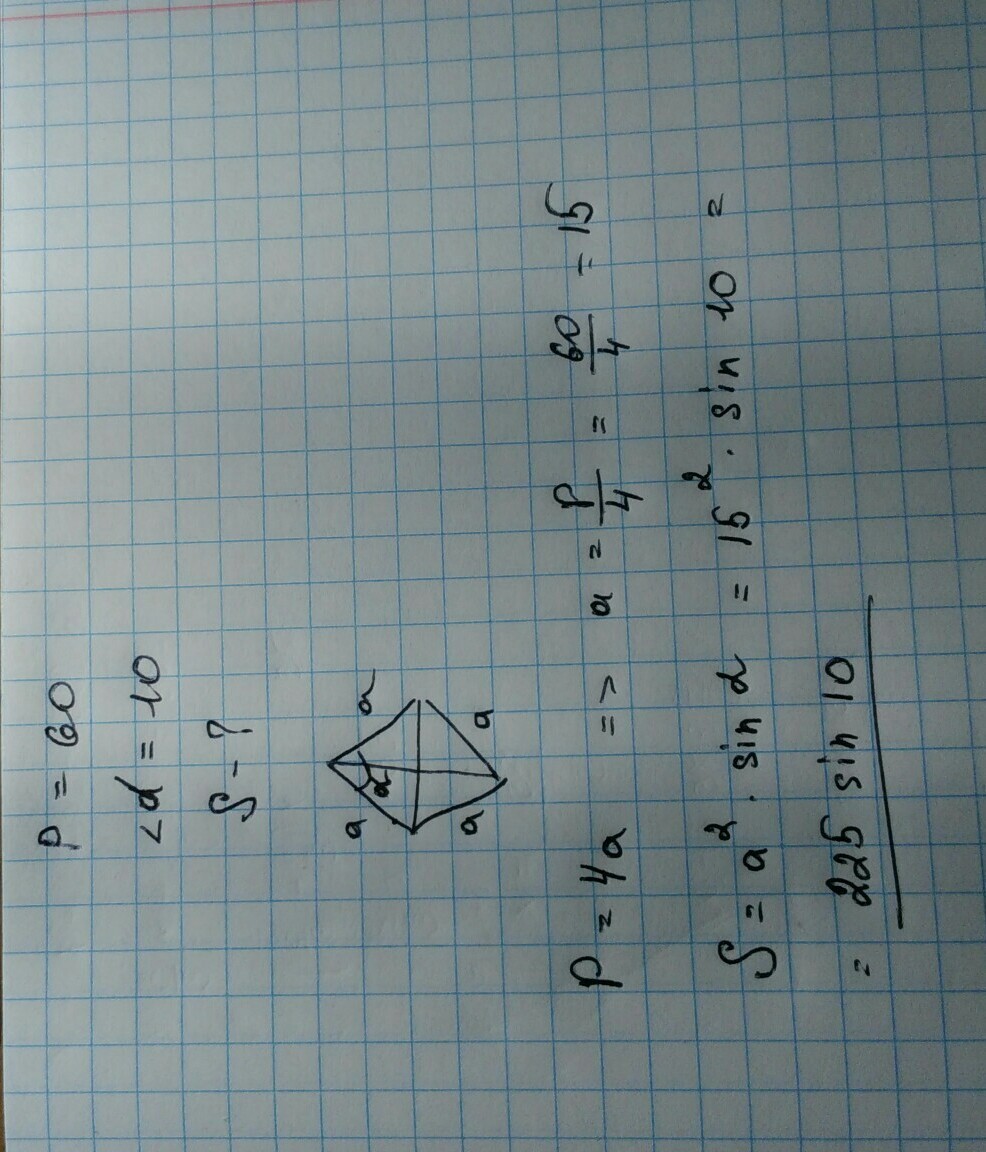 P = 60
<α = 10
S - ?
a a
α
a a
P = 4a => a = P/4 = 60/4 = 15
S = a² · sin α = 15² · sin 10 =
= 225 sin 10